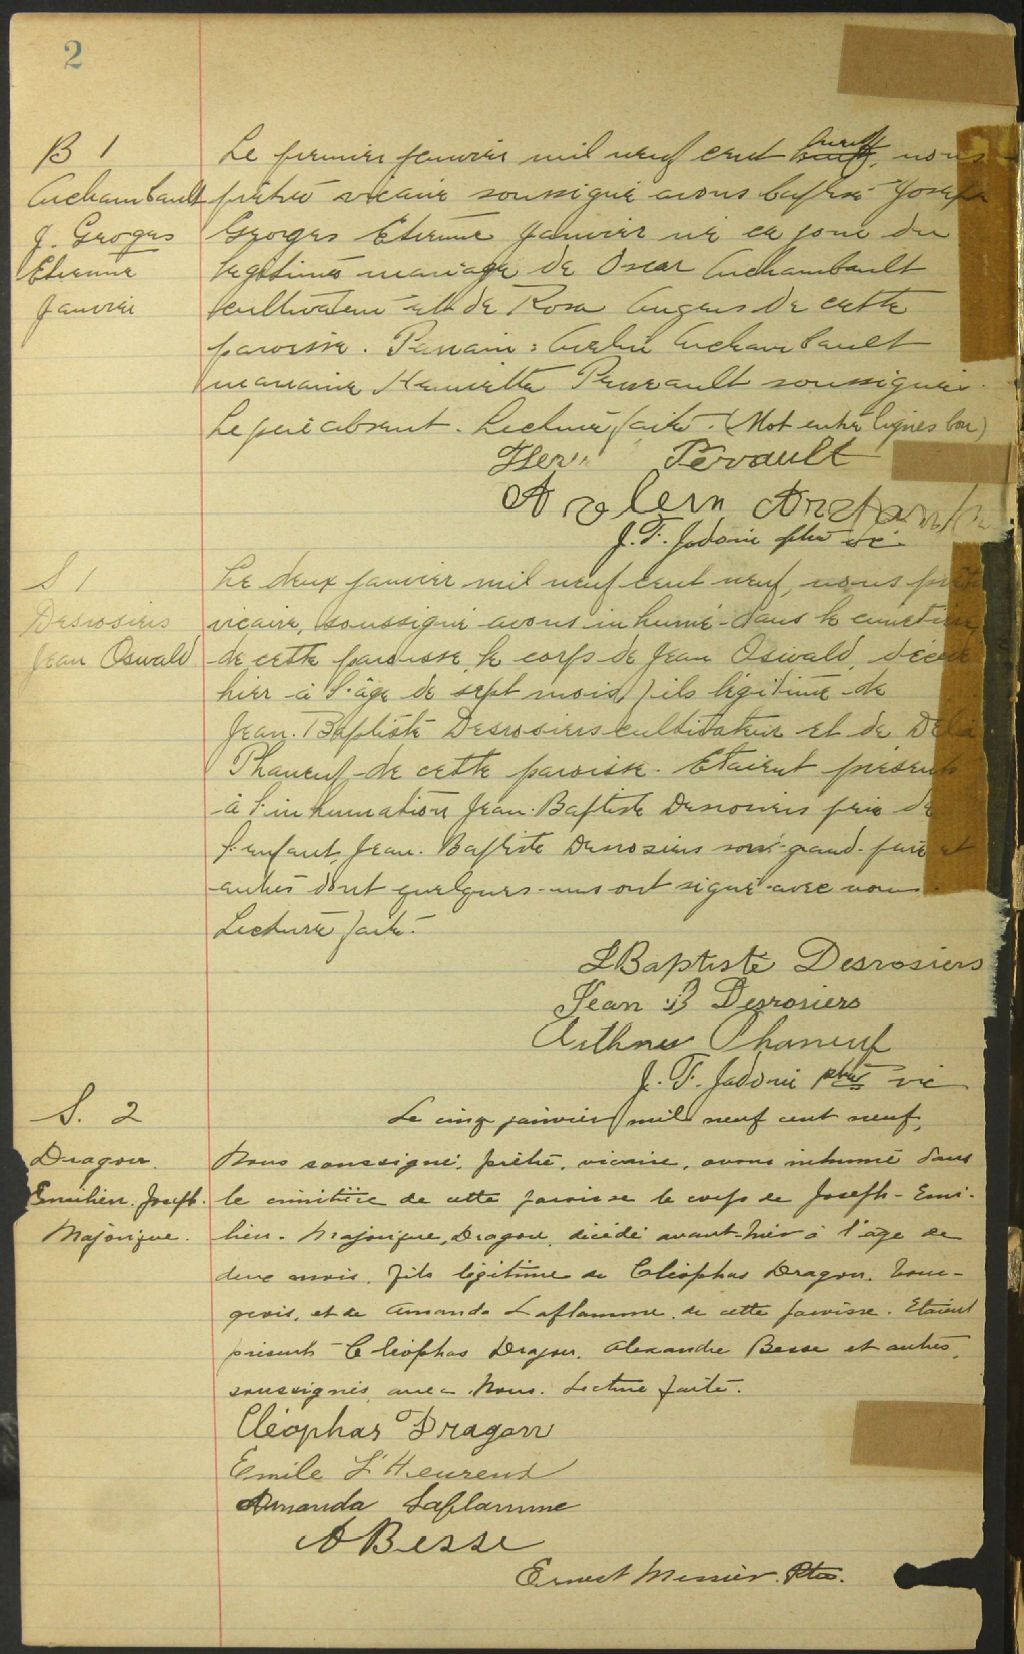 2
B 1
Archambault
J. Georges
Etienne
Janvier
Le premier janvier mil neuf cent neuf, nous
prêtre vicaire soussigné avons baptisé Joseph
Georges Etienne Janvier né ce jour du
légitime mariage de Oscar Archambault
cultivateur et de Rosa Angers de cette
paroisse. Parrain: Archambault
marraine Henriette Perrault soussignés.
Le père absent. Lecture faite. (Mot entre lignes bon)
Perrault
J. F. Jodoin ptre vic
S 1
Desrosiers
Jean Oswald
Le deux janvier mil neuf cent neuf, nous prêtre
vicaire, soussigné avons inhumé dans le cimetière
de cette paroisse le corps de Jean Osivald, décédé
hier à l'âge de sept mois, fils légitime de
Jean-Baptiste Desrosiers cultivateur et de Délia
Phaneuf de cette paroisse. Etaient présents
à l'inhumation Jean-Baptiste Desrosiers père de
l'enfant, Jean-Baptiste Desrosiers son grand-père et
autres dont quelques-uns ont signé avec nous.
Lecture faite.
J Baptiste Desrosiers
Jean B Desrosiers
Arthur Phaneuf
J. F. Jodoin ptre vic
S. 2
Dragon.
Emilien. Joseph.
Majorique.
Le cinq janvier mil neuf cent neuf,
Nous soussigné, prêtre, vicaire, avons inhumé dans
le cimitière de cette paroisse le corps de Joseph-Emi-
lien-Majorique, Dragon, décédé avant-hier à l'âge de
deux mois, fils légitime de Cléophas Dragon, bour-
geois, et de Amanda Laflamme de cette paroisse. Etaient
présents Cléophas Dragon, Alexandre Besse et autres,
soussignés avec Nous. Lecture faite.
Cléophas Dragon
Emile L'Heureux
Amanda Laflamme
A Besse
Ernest Messier. Ptre.